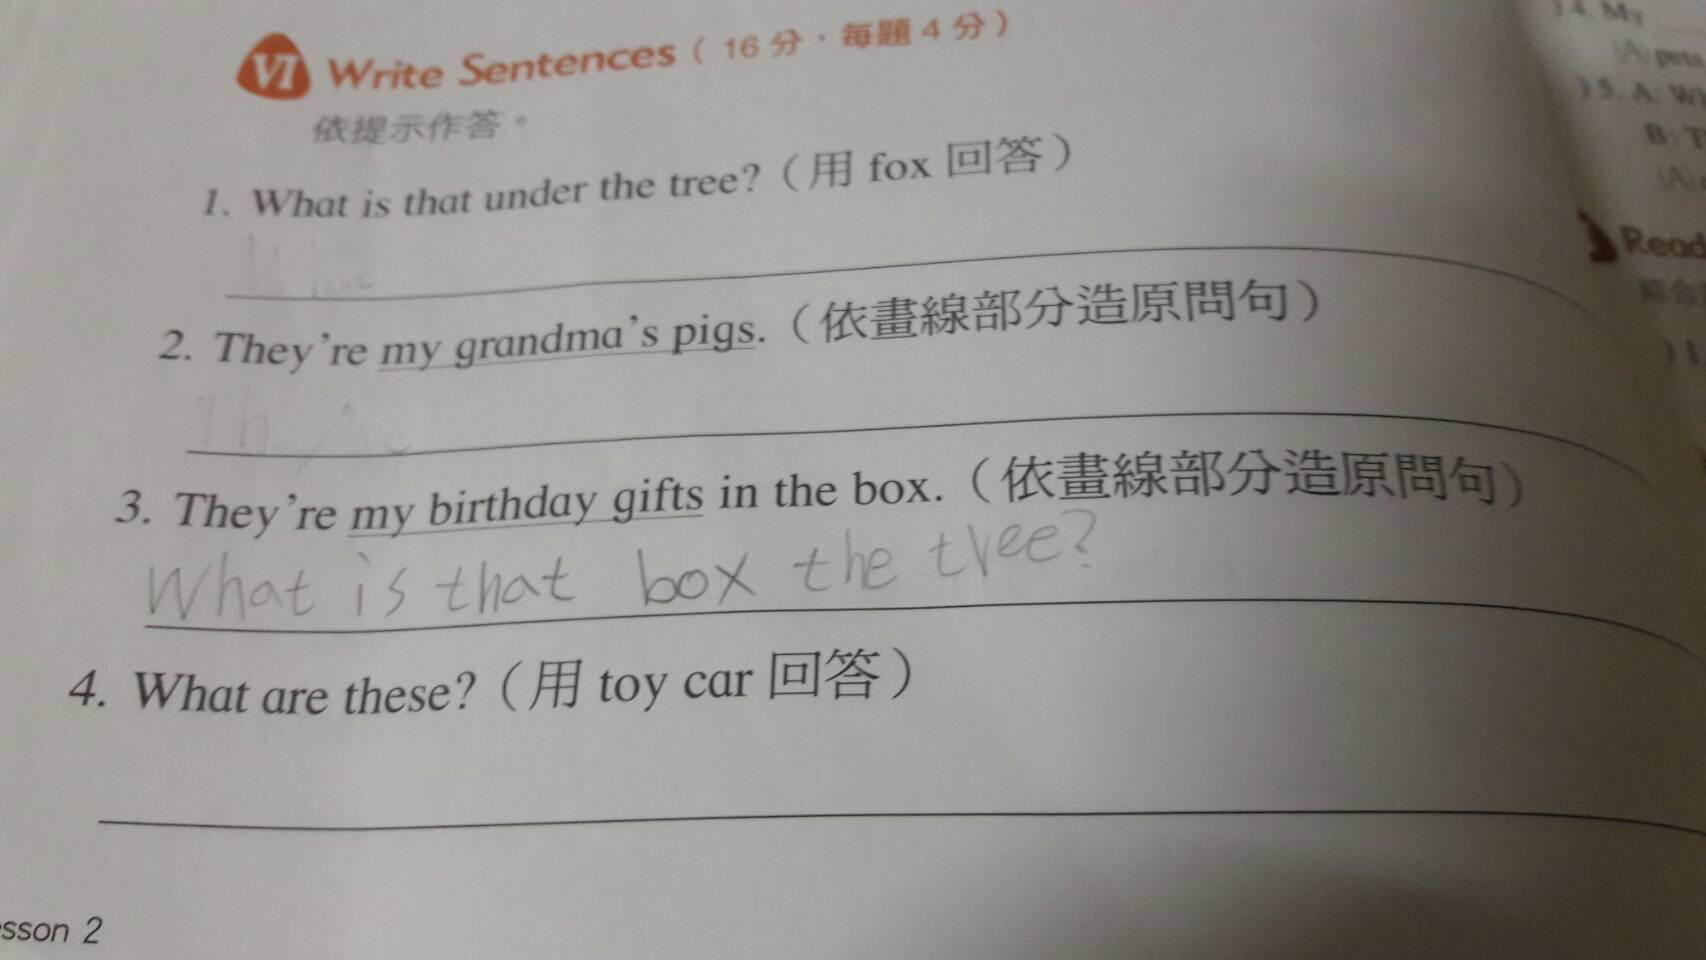 VI Write Sentences（16 分．每題 4 分）
依提示作答。
1. What is that under the tree?（用 fox 回答）
2. They're my grandma's pigs.（依畫線部分造原問句）
3. They're my birthday gifts in the box.（依畫線部分造原問句）
What is that box the tree?
4. What are these?（用 toy car 回答）
sson 2
4. My
(A) pets
) 5. A: Wh
B: T
(A)
Read
) 1.